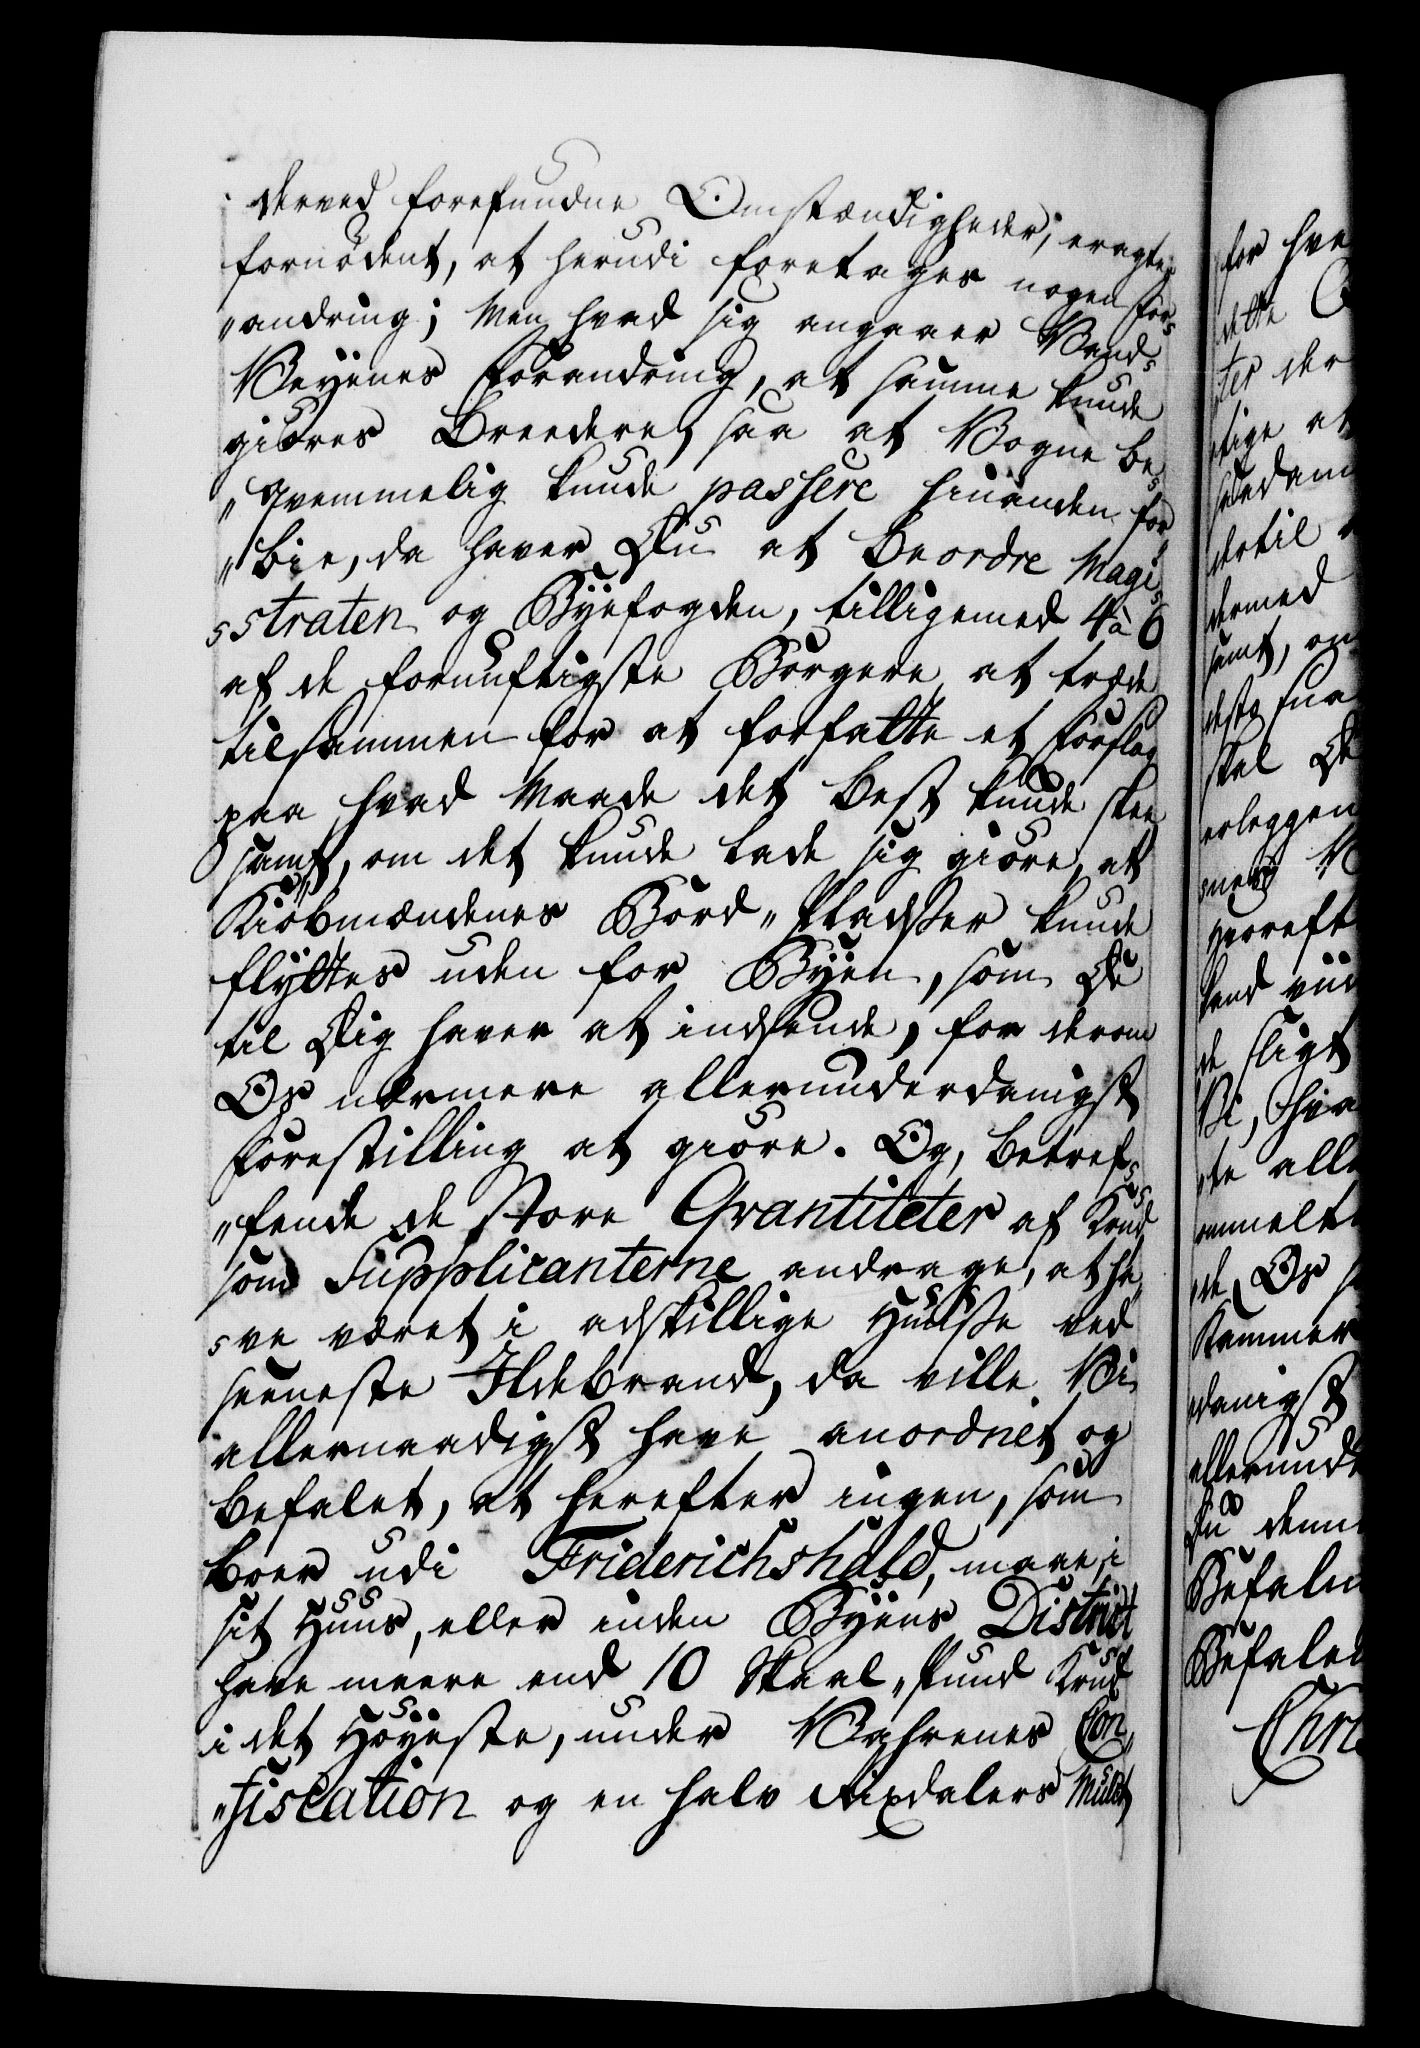 derved forefundne Omstændigheder, eragte
fornødent, at herudi foretages nogen For-
„andring; Men hvad sig angaaer Vand-
Veyenes Forandring, at samme kunde
giøres Breedere, saa at Vogne be-
„qvemmelig kunde passere hinanden for
„bie, da haver Du at beordre Magi-
-straten og Byefogden, tilligemed 4 à 6
af de fornuftigste Borgere at træde
tilsammen for at forfatte et Forslag
paa hvad Maade det best kunde skee
samt, om det kunde lade sig giøre, at
Kiøbmændenes Bord-Pladser kunde
flyttes uden for Byen, som De
til Dig haver at indsende, for derom
Os nærmere allerunderdanigst
Forestilling at giøre. Og, betref-
„fende de store Qvantiteter af Krud
som Supplicanterne andrage, at ha-
-ve været i adskillige Huusse ved
seeneste Ildebrand, da ville Vi
allernaadigst have anordnet og
befalet, at herefter ingen, som
boer udi Friderichshald, maae, i
sit Huus, eller inden Byens District
have meere end 10 Skaal-Pund Krud
i det Høyeste, under Vahrenes Con-
„fiscation og en halv Rixdalers Mulct
for hve
dette
der
tige at
saadan
dertil
dermed
samt, om
desto
skal De
erleggen
Hvoreft
kand viid
de sligt
Vi, hva
te alle
de, Os
Kammer
danigst
allerund
Du denne
Befalin
Befalet
Chri